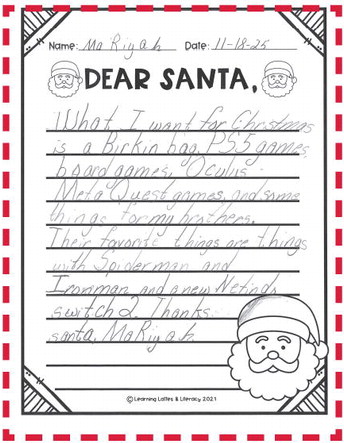 Name: MaRiyah Date: 11-18-25
DEAR SANTA,
What I want for Christmas
is a Birkin bag, PS5 games,
board games, Oculus
Meta Quest games, and some
things for my brothers.
Their favorite things are things
with Spiderman and
Ironman and a new Netind
switch 2. Thanks
santa, MaRiyah
©Learning Lattes & Literacy 2021